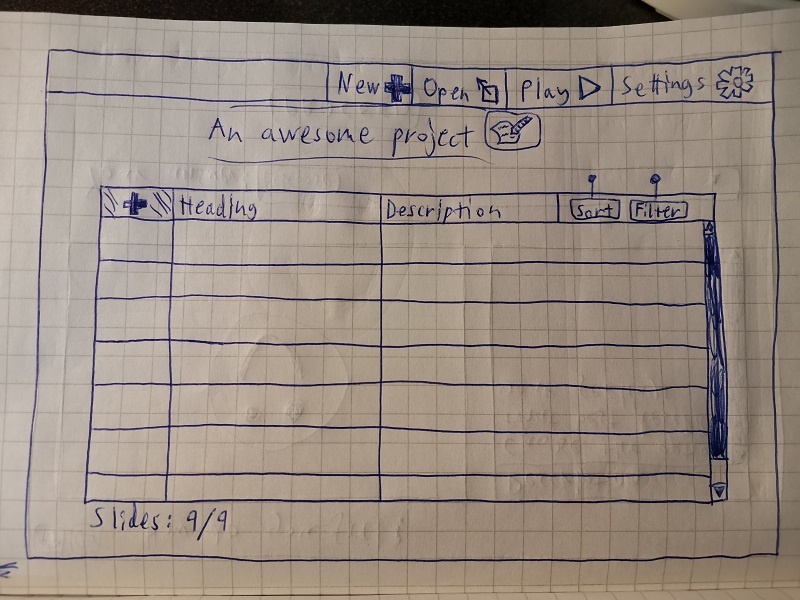 New Open Play Settings
An awesome project
Heading Description Sort Filter
Slides: 9/9